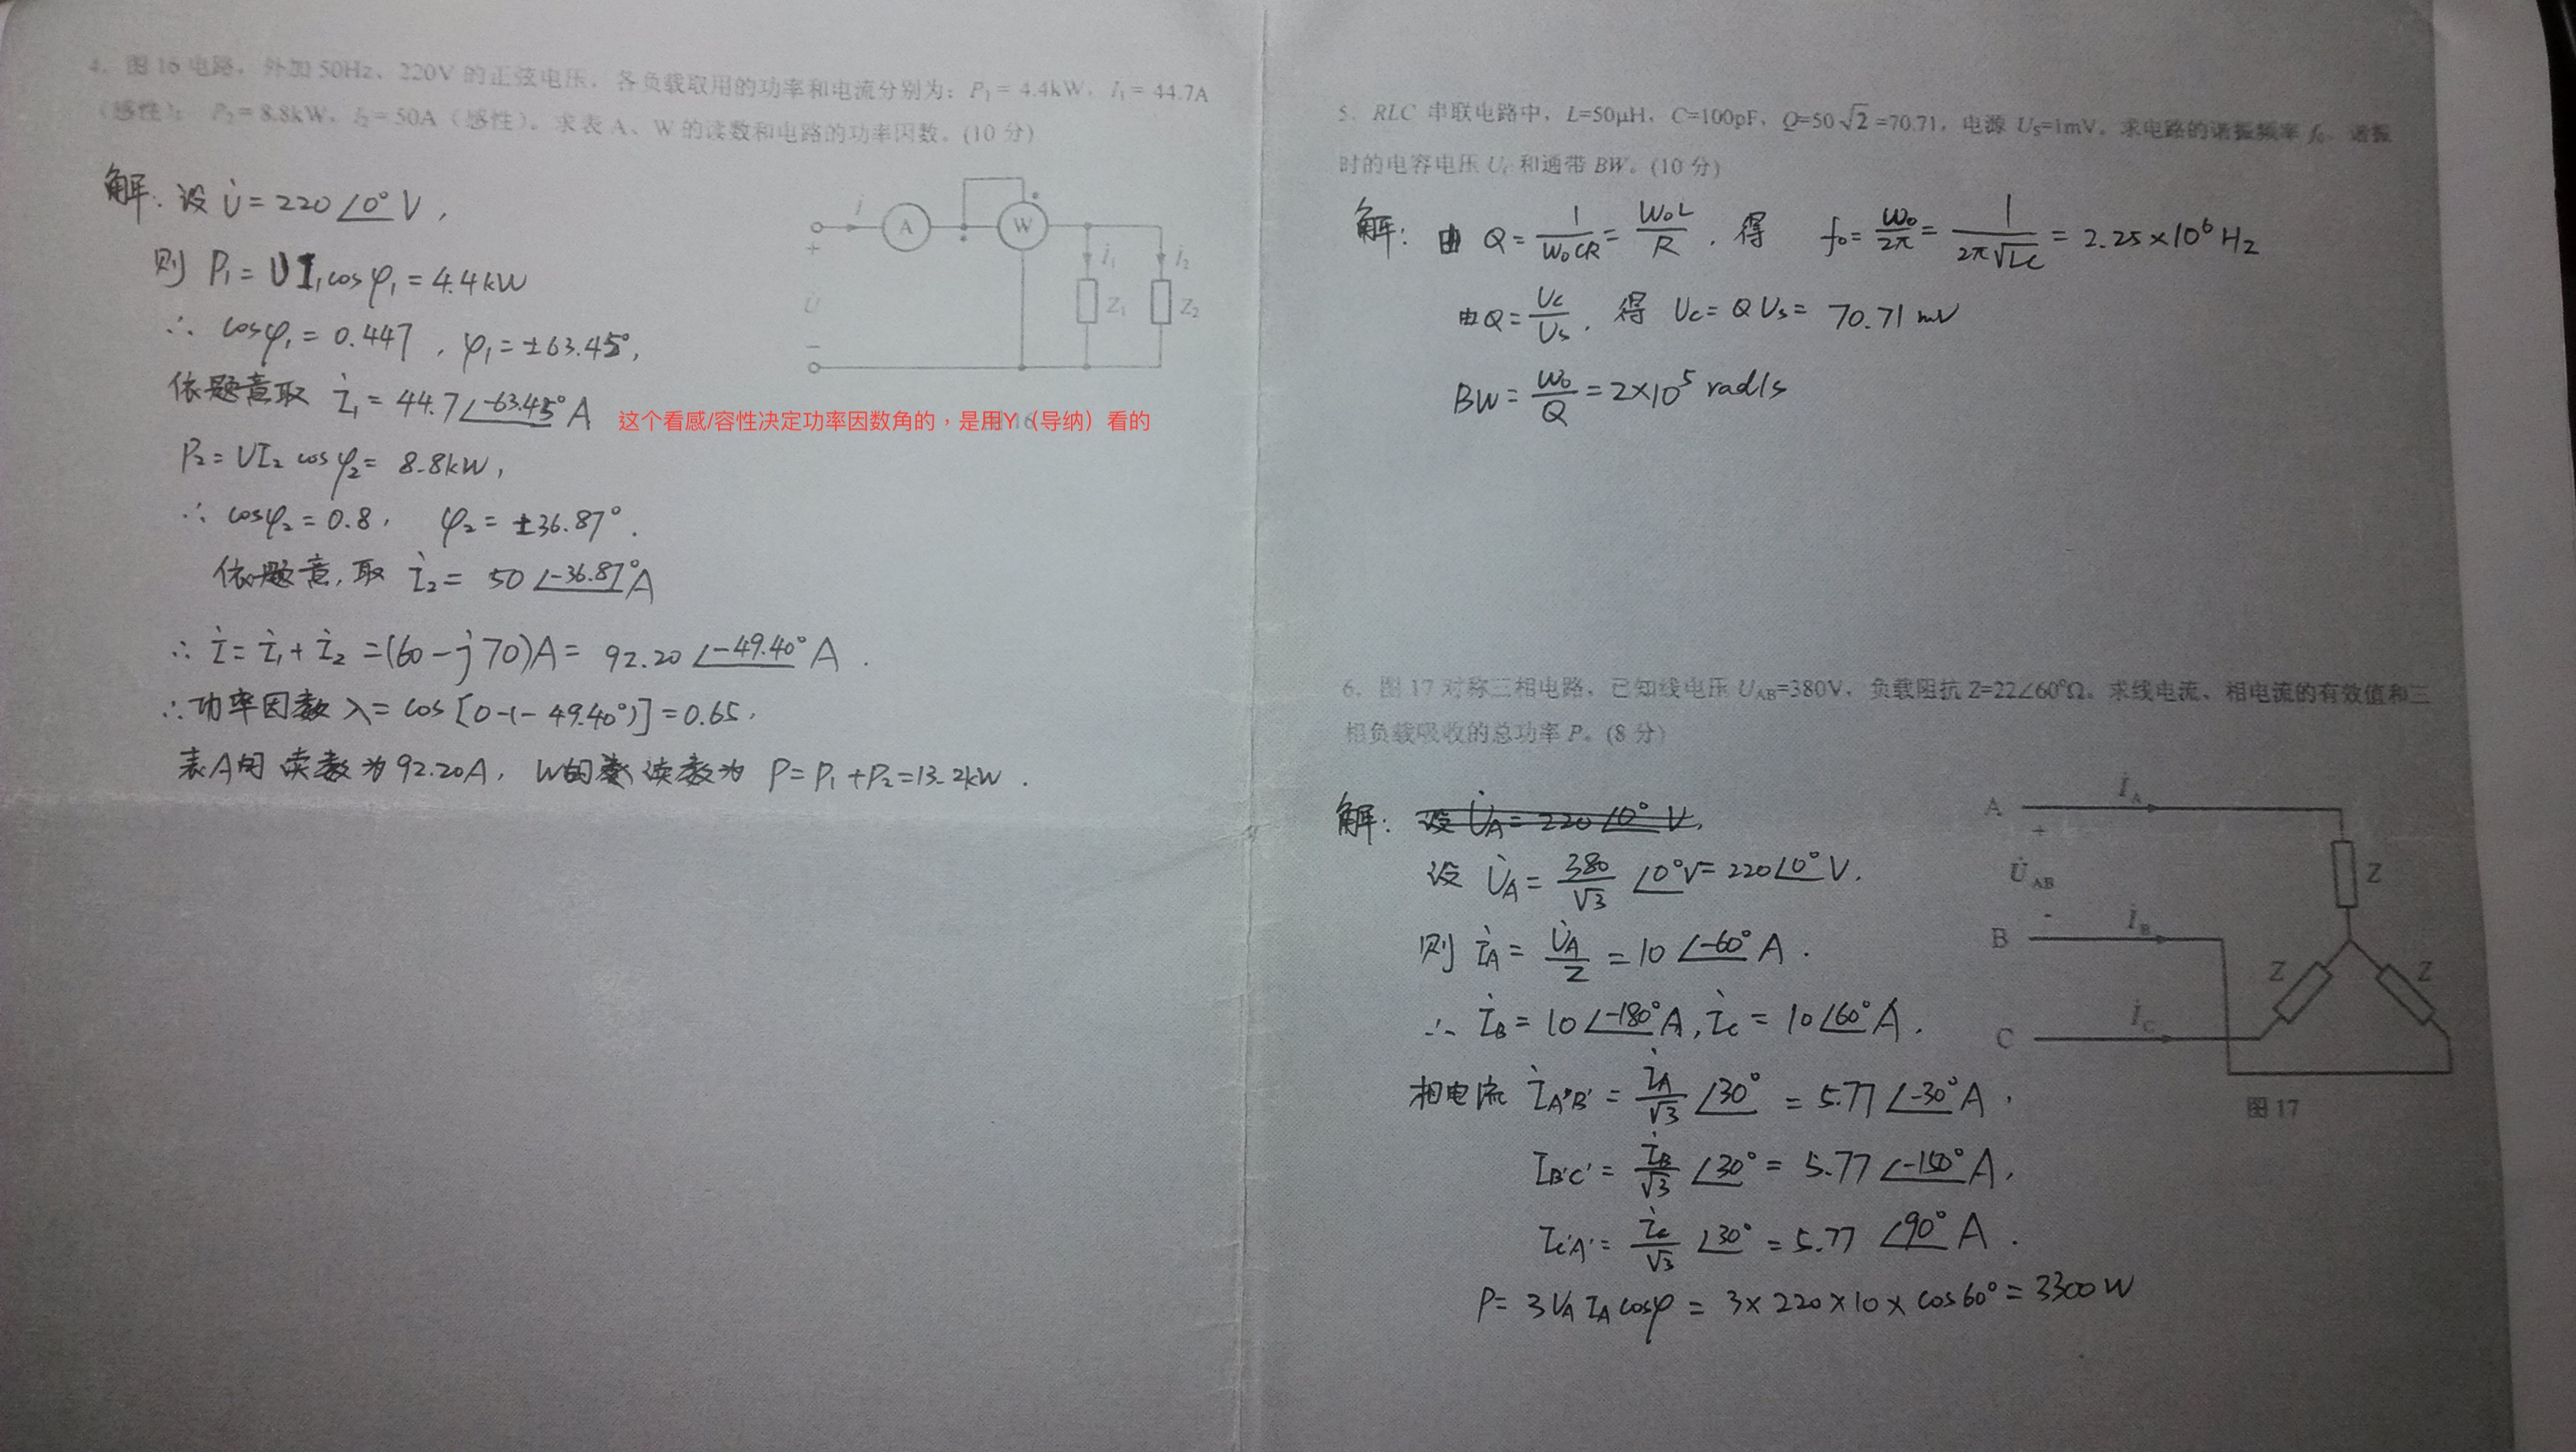 4．图16电路，外加50Hz、220V的正弦电压，各负载取用的功率和电流分别为：P₁ = 4.4kW，I₁ = 44.7A
（感性）；P₂ = 8.8kW，I₂ = 50A（感性）。求表A、W的读数和电路的功率因数。(10分)
解：设 U̇ = 220∠0° V，
则 P₁ = UI₁cosφ₁ = 4.4kW
∴ cosφ₁ = 0.447，φ₁ = ±63.45°，
依题意取 İ₁ = 44.7∠-63.45° A
这个看感/容性决定功率因数角的，是用Y（导纳）看的
P₂ = UI₂ cosφ₂ = 8.8kW，
∴ cosφ₂ = 0.8， φ₂ = ±36.87°．
依题意，取 İ₂ = 50∠-36.87° A
∴ İ = İ₁ + İ₂ = (60 - j70)A = 92.20∠-49.40° A．
∴功率因数 λ = cos[0-(-49.40°)] = 0.65．
表A的读数为92.20A，W的读数为 P = P₁ + P₂ = 13.2kW．
İ
A
W
+
U̇
−
İ₁
İ₂
Z₁
Z₂
5．RLC 串联电路中，L=50μH，C=100pF，Q=50√2=70.71，电源 Us=1mV。求电路的谐振频率 f₀、谐振
时的电容电压 Uc 和通带 BW。(10分)
解：由 Q = 1/(ω₀CR) = ω₀L/R，得 f₀ = ω₀/2π = 1/(2π√LC) = 2.25×10⁶ Hz
由Q = Uc/Us，得 Uc = QUs = 70.71 mV
BW = ω₀/Q = 2×10⁵ rad/s
6．图17对称三相电路，已知线电压 U_AB=380V，负载阻抗 Z=22∠60°Ω。求线电流、相电流的有效值和三
相负载吸收的总功率 P。(8分)
解：设 U̇A = 220∠0° V，
设 U̇A = 380/√3 ∠0°V = 220∠0° V．
则 İA = U̇A/Z = 10∠-60° A．
∴ İB = 10∠-180° A，İC = 10∠60° A．
相电流 İA'B' = İA/√3 ∠30° = 5.77∠-30° A，
IB'C' = İB/√3 ∠30° = 5.77∠-150° A，
IC'A' = İC/√3 ∠30° = 5.77∠90° A．
P = 3UA IA cosφ = 3×220×10×cos60° = 3300W
A
İA
+
U̇AB
-
B
İB
C
İC
Z
Z
Z
图17